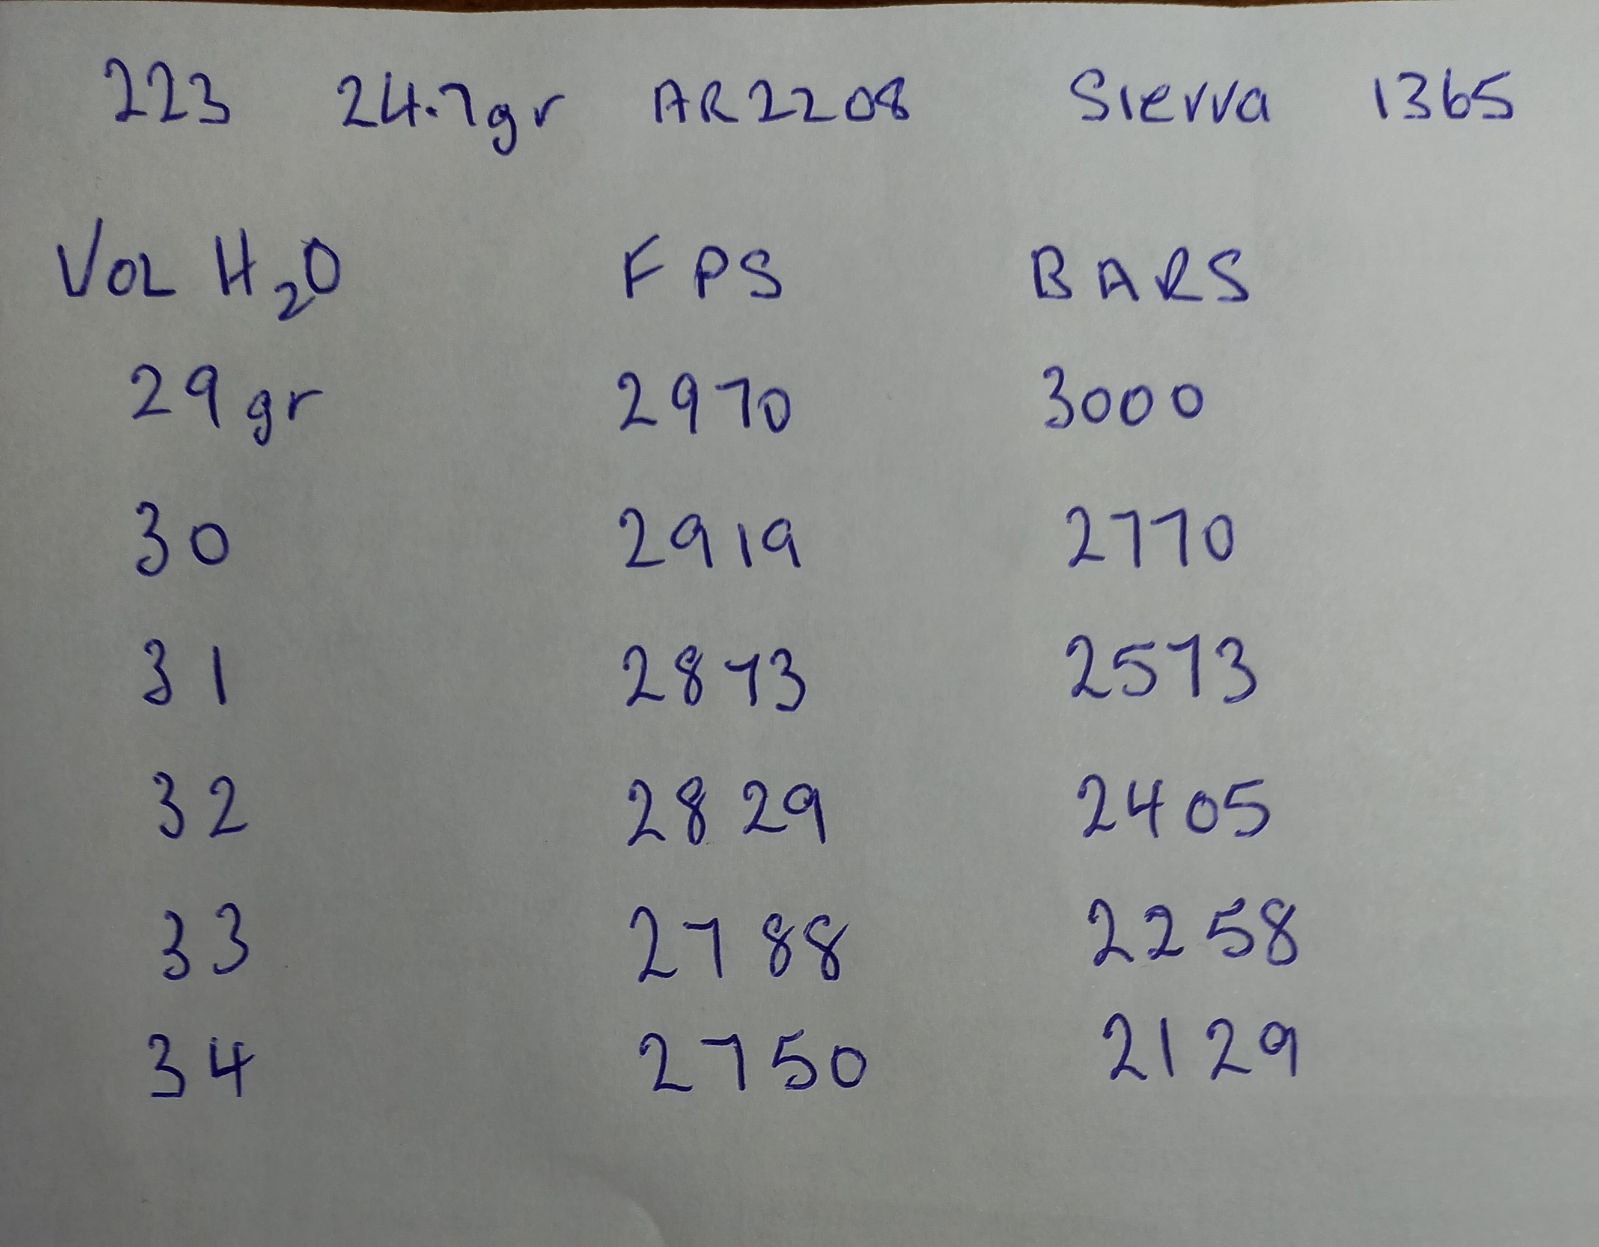 223 24.7gr AR2208 Sierra 1365
VOL H₂O FPS BARS
29gr 2970 3000
30 2919 2770
31 2873 2573
32 2829 2405
33 2788 2258
34 2750 2129